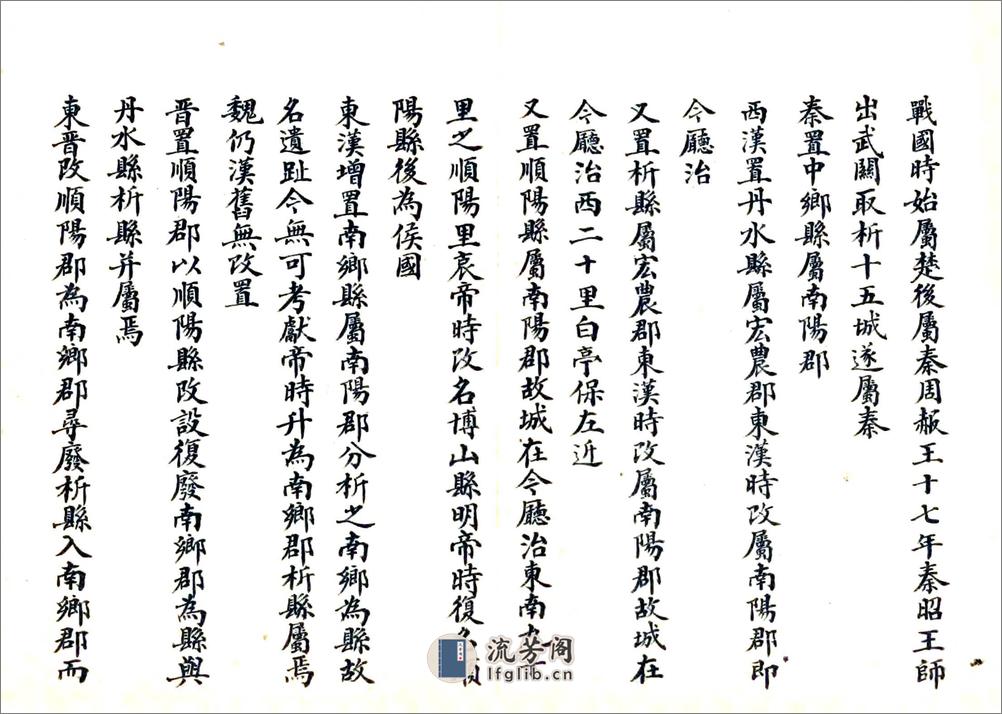 戰國時始屬楚後屬秦周赧王十七年秦昭王師
出武關取析十五城遂屬秦
秦置中鄉縣屬南陽郡
西漢置丹水縣屬宏農郡東漢時改屬南陽郡即
今廳治
又置析縣屬宏農郡東漢時改屬南陽郡故城在
今廳治西二十里白亭保左近
又置順陽縣屬南陽郡故城在今廳治東南
里之順陽里哀帝時改名博山縣明帝時復
陽縣後為侯國
東漢增置南鄉縣屬南陽郡分析之南鄉為縣故
名遺趾今無可考獻帝時升為南鄉郡析縣屬焉
魏仍漢舊無改置
晉置順陽郡以順陽縣改設復廢南鄉郡為縣與
丹水縣析縣并屬焉
東晉改順陽郡為南鄉郡尋廢析縣入南鄉郡而
流芳阁
lfglib.cn